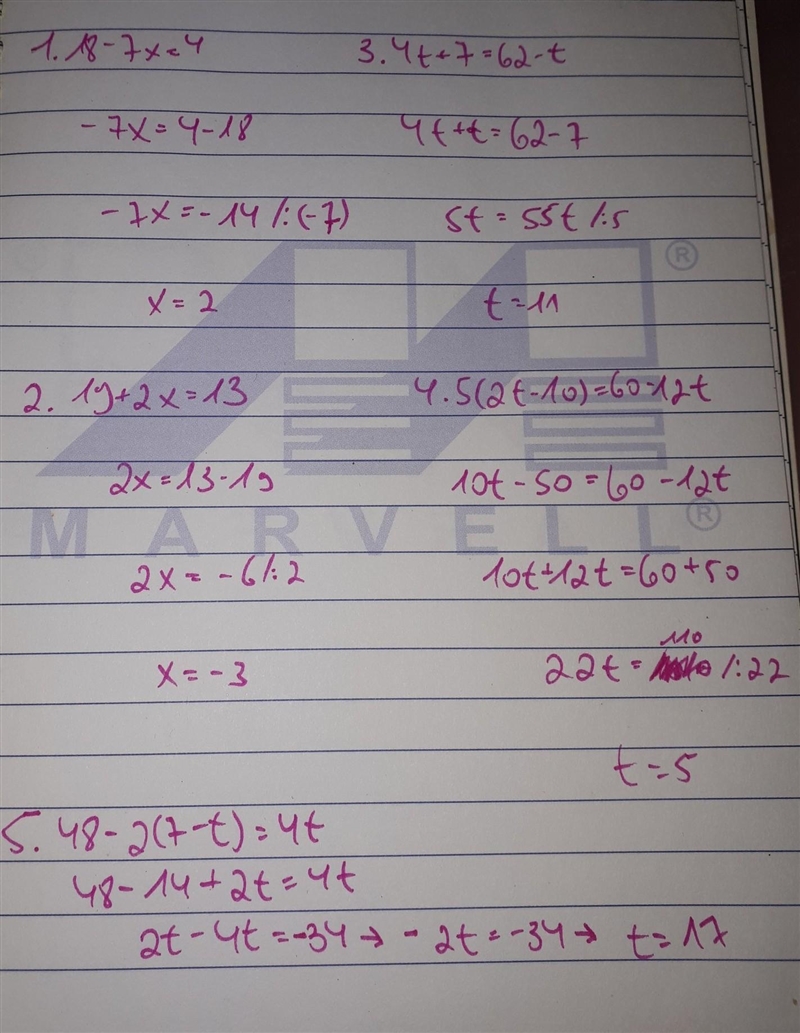 1. 18-7x=4
-7x=4-18
-7x=-14 /:(-7)
x=2
2. 19+2x=13
2x=13-19
2x=-6/:2
x=-3
3. 4t+7=62-t
4t+t=62-7
5t=55t /:5
t=11
4. 5(2t-10)=60-12t
10t-50=60-12t
10t+12t=60+50
22t=110 /:22
t=5
5. 48-2(7-t)=4t
48-14+2t=4t
2t-4t=-34→ -2t=-34→ t=17
®
MARVELL®